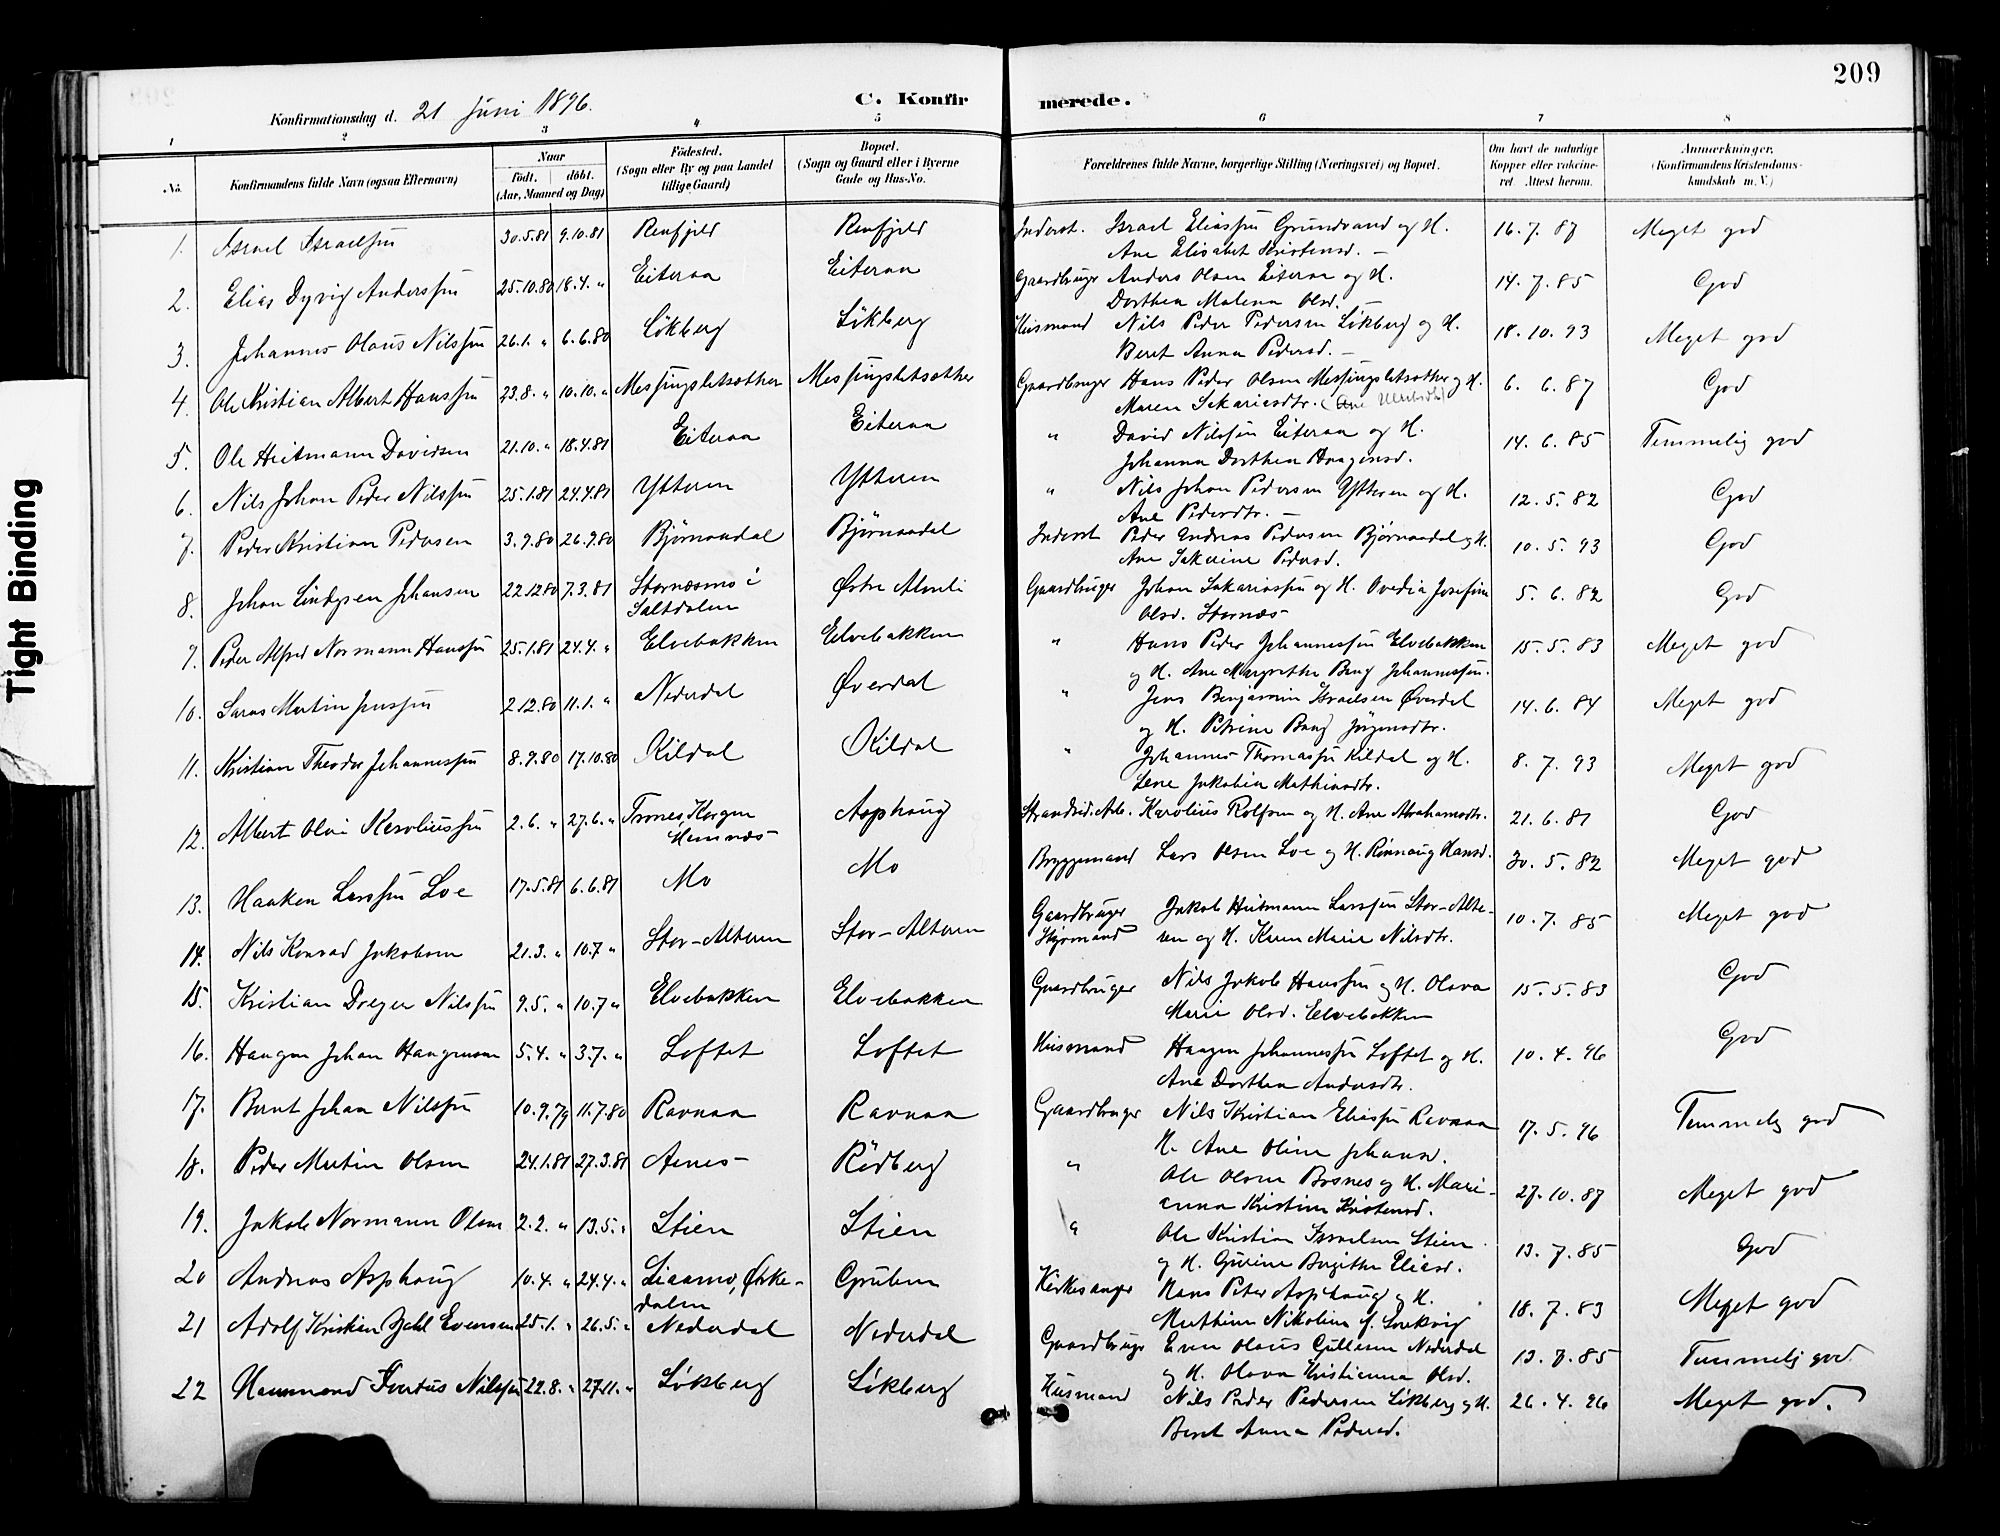 209
Konfirmationsdag d. 21 Juni 1896.
C. Konfirmerede.
1 2 3 4 5 6 7 8
No. Konfirmandens fulde Navn (ogsaa Efternavn) Naar født. døbt. (Aar, Maaned og Dag) Fødested. (Sogn eller By og paa Landet tillige Gaard) Bopæl. (Sogn og Gaard eller i Byerne Gade og Hus-No. Forældrenes fulde Navne, borgerlige Stilling (Næringsvei) og Bopæl. Om havt de naturlige Kopper eller vaccineret. Attest herom. Anmærkninger. (Konfirmandens Kristendomskundskab m. V.)
1. Israel Israelssen 30.5.81 9.10.81 Renfjeld Renfjeld Inderst. Israel Eliassen Grundvand og H. 16.7.87 Meget god
Ane Elisabet Kristensd. –
2. Elias Dyrig Anderssen 25.10.80 18.4. " Eiteraa Eiteraa Gaardbruger Anders Olsen Eiteraa og H. 14.7.85 God
Dorthea Malena Olsd. –
3. Johannes Olaus Nilssen 26.1. " 6.6.80 Løkberg Løkberg Husmand Nils Peder Pedersen Løkberg og H. 18.10.93 Meget god
Beret Anna Pedersd. –
4. Ole Kristian Albert Hanssen 23.8. " 10.10. " Messingsletsæther Messingsletsæther Gaardbruger Hans Peder Olsen Messingsletsæther og H. 6.6.87 God
Maren Sakariasdtr.
5. Ole Heitmann Davidsen 21.10. " 18.4.81 Eiteraa Eiteraa " David Nilssen Eiteraa og H. 14.6.85 Temmelig god
Johanna Dorthea Haagensd.
6. Nils Johan Peder Nilssen 25.1.81 24.4.81 Ytteren Ytteren " Nils Johan Pedersen Ytteren og H. 12.5.82 God
Ane Pedersdtr. –
7. Peder Kristian Pedersen 3.9.80 26.9.80 Bjørnaadal Bjørnaadal Inderst Peder Andreas Pedersen Bjørnaadal og H. 10.5.93 God
Ane Sakrine Pedersd.
8. Johan Lindgren Johansen 22.12.80 7.3.81 Stornæsmo i Saltdalen Østre Almli Gaardbruger Johan Sakariassen og H. Ovedia Josefine 5.6.82 God
Olsd. Stornæs
9. Peder Alfred Normann Hanssen 25.1.81 24.4. " Elvebakken Elvebakken " Hans Peder Johannessen Elvebakken 15.5.83 Meget god
og H. Ane Margrethe Bang Johannessen.
10. Martin Jenssen 2.12.80 11.1. " Nederdal Øverdal " Jens Benjamin Israelsen Øverdal 14.6.84 Meget god
og H. Petrine Bang Jørgensdtr.
11. Kristian Theodor Johannessen 8.9.80 17.10.80 Kildal Kildal " Johannes Thomassen Kildal og H. 8.7.93 Meget god
Lene Jakobia Mathiasdtr.
12. Albert Olai Karoliussen 2.6. " 27.6. " Trones, Korgen Hemnæs Asphaug Strandsid. Arb. Karolius Rolfsen og H. Ane Abrahamsdtr. 21.6.81 God
13. Haaken Larssen Loe 17.5.81 6.6.81 Mo Mo Bryggemand Lars Olsen Loe og H. Rønnaug Hansd. 30.5.82 Meget god
14. Nils Konrad Jakobsen 21.3. " 10.7 " Stor-Alteren Stor-Alteren Gaardbruger Jakob Heitmann Larssen Stor-Alte- 10.7.85 Meget god
Styrmand ren og H. Karen Marie Nilsdtr.
15. Kristian Dreyer Nilssen 9.5. " 10.7 " Elvebakken Elvebakken Gaardbruger Nils Jakob Hanssen og H. Olava 15.5.83 God
Marie Olsd. Elvebakken
16. Haagen Johan Haagensen 5.4. " 3.7. " Loftet Loftet Husmand Haagen Johannessen Loftet og H. 10.4.96 God
Ane Dorthea Andersdtr.
17. Bernt Johan Nilssen 10.9.79 11.7.80 Ravnaa Ravnaa Gaardbruger Nils Kristian Eliassen Ravnaa 17.5.96 Temmelig god
H. Ane Oline Johansd.
18. Peder Martin Olsen 24.1.81 27.3.81 Aenes Rødberg " Ole Olsen Bosnes og H. Mari- 27.10.87 Meget god
anna Kristine Kristensd.
19. Jakob Normann Olsen 2.2. " 13.5. " Stien Stien " Ole Kristian Israelsen Stien 13.7.85 God
og H. Gurine Birgitte Eliasd.
20 Andreas Asphaug 10.4. " 24.4. " Liaamo, Ørke- dalen Gruben Kirkesanger Hans Peter Asphaug og H. 18.7.83 Meget god
Mathine Nikoline f.
21 Adolf Kristian Evensen 25.1. " 26.5. " Nederdal Nederdal Gaardbruger Even Olaus Gullesen Nederdal 13.7.85 Temmelig god.
og H. Olava Kristianna Olsd.
22 Hammond Nilssen 22.8. " 27.11. " Løkberg Løkberg Husmand Nils Peder Pedersen Løkberg og H. 26.4.96 Meget god.
Beret Anna Pedersd.
Tight Binding